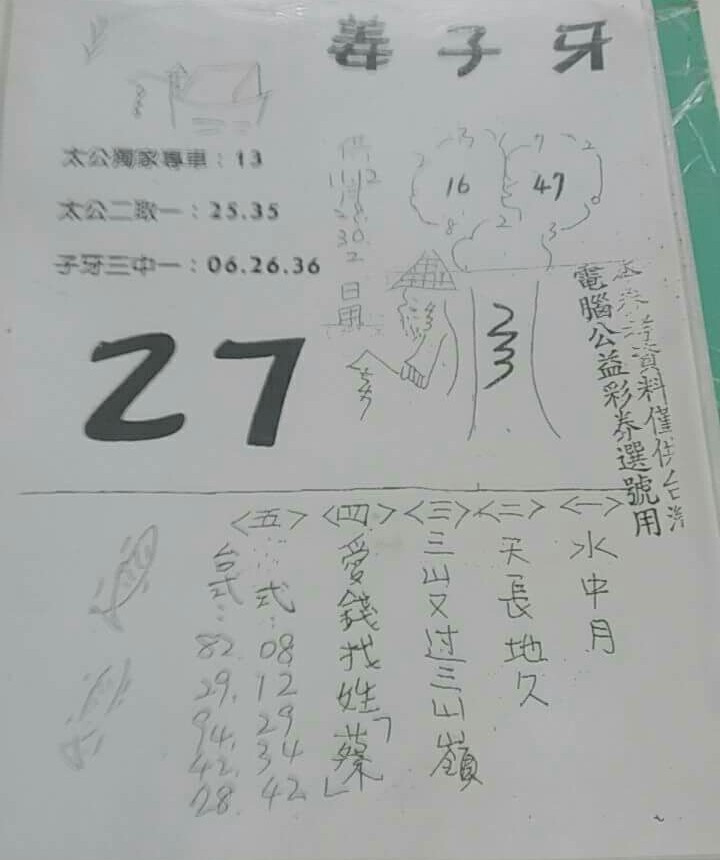 姜子牙
太公獨家專車：13
太公二取一：25.35
子牙三中一：06.26.36
27
供
11.12
月
28.
30.
2
日用
16
47
3
2
8
7
2
2
3
23
資料僅供台灣
電腦公益彩券選號用
<一>水中月
<二>天長地久
<三>三山又过三山嶺
<四>愛錢找姓「蔡」
<五>
式：08. 12 29 34 42
台式：82. 29. 94. 42. 28.